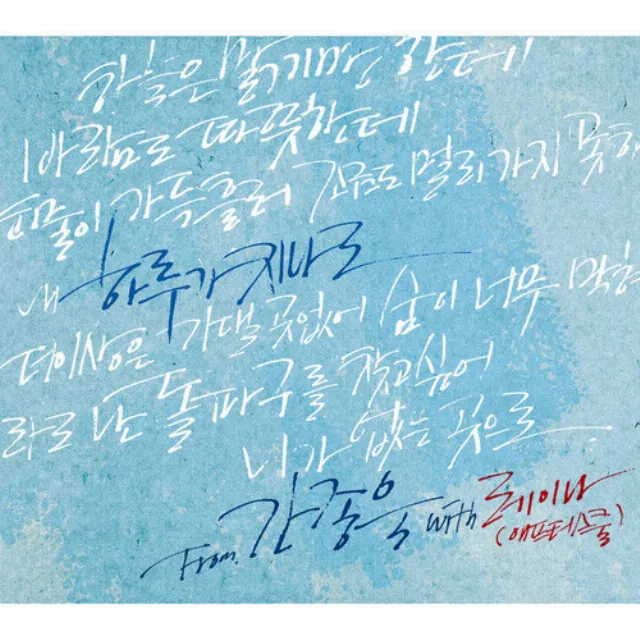 하늘은 맑기만 한데
바람도 따뜻한데
눈물이 가득흘러 조금도 멀리가지 못하
내 하루가 지나도
더이상은 기댈 곳없어 숨이 너무 막혀
라도 난 돌파구를 찾고싶어
니가 없는 곳으로
From. 간종욱 with 레이나
(애프터스쿨)